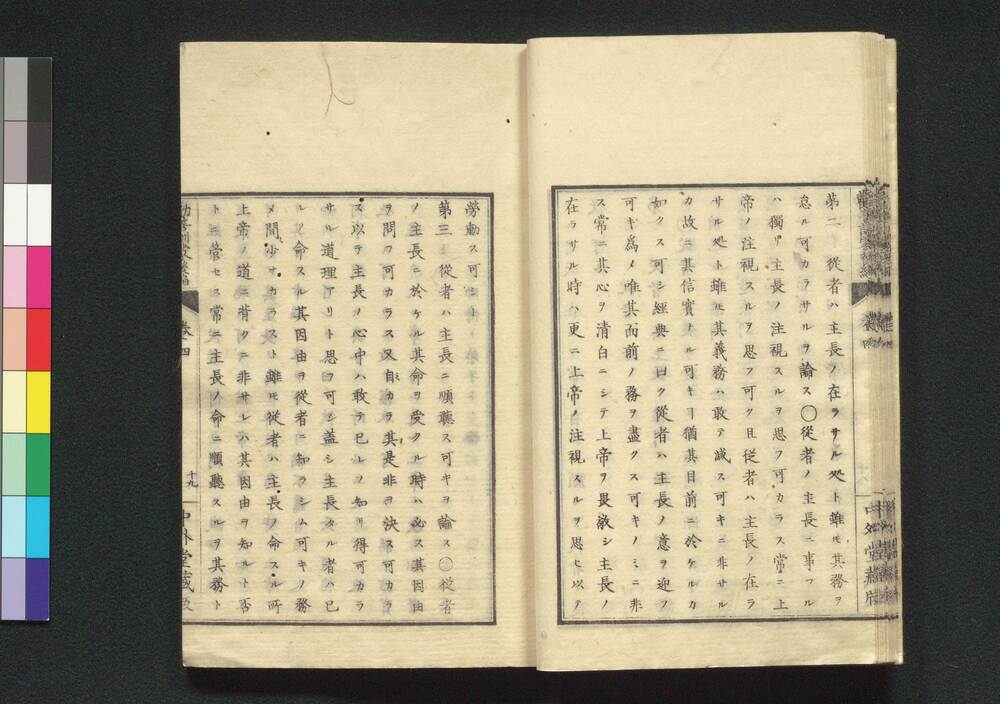 第二 從者ハ主長ノ在ラサル処ト雖モ其務ヲ
怠ル可カラサルヲ論ス〇從者ノ主長ニ事フル
ハ獨リ主長ノ注視スルヲ思フ可カラス常ニ上
帝ノ注視スルヲ思フ可ク且従者ハ主長ノ在ラ
サル処ト雖モ其義務ハ敢テ減ス可キニ非サル
カ故ニ其信實ナル可キヿ猶其目前ニ於ケルカ
如クス可シ経典ニ曰ク從者ハ主長ノ意ヲ迎フ
可キ為メ唯其面前ノ務ヲ盡クス可キノミニ非
ス常ニ其心ヲ清白ニシテ上帝ヲ畏敬シ主長ノ
在ラサル時ハ更ニ上帝ノ注視スルヲ思ヒ以テ
勞動ス可シト
第三 從者ハ主長ニ順聽ス可キヲ論ス〇從者
ノ主長ニ於ケル其命ヲ受クル時ハ必ス其因由
ヲ問フ可カラス又自カラ其是非ヲ決ス可カラ
ス以テ主長ノ心中ハ敢テ已レノ知リ得可カラ
サル道理アリト思フ可シ蓋シ主長タル者ハ已
レノ命スル其因由ヲ從者ニ知ラシム可キノ務
メ間少ナカラスト雖モ従者ハ主長ノ命スル所
上帝ノ道ニ背クニ非サレハ其因由ヲ知ルト否
トニ管セス常ニ主長ノ命ニ順聽スルヲ其務ト
卷四
十九
中外堂藏版